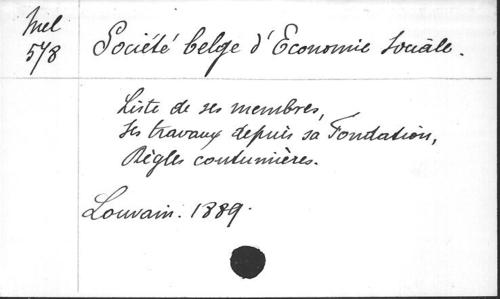 Mel
578
Société belge d'Economie sociale.
Liste de ses membres,
ses travaux depuis sa Fondation,
Règles coutumières.
Louvain. 1889.